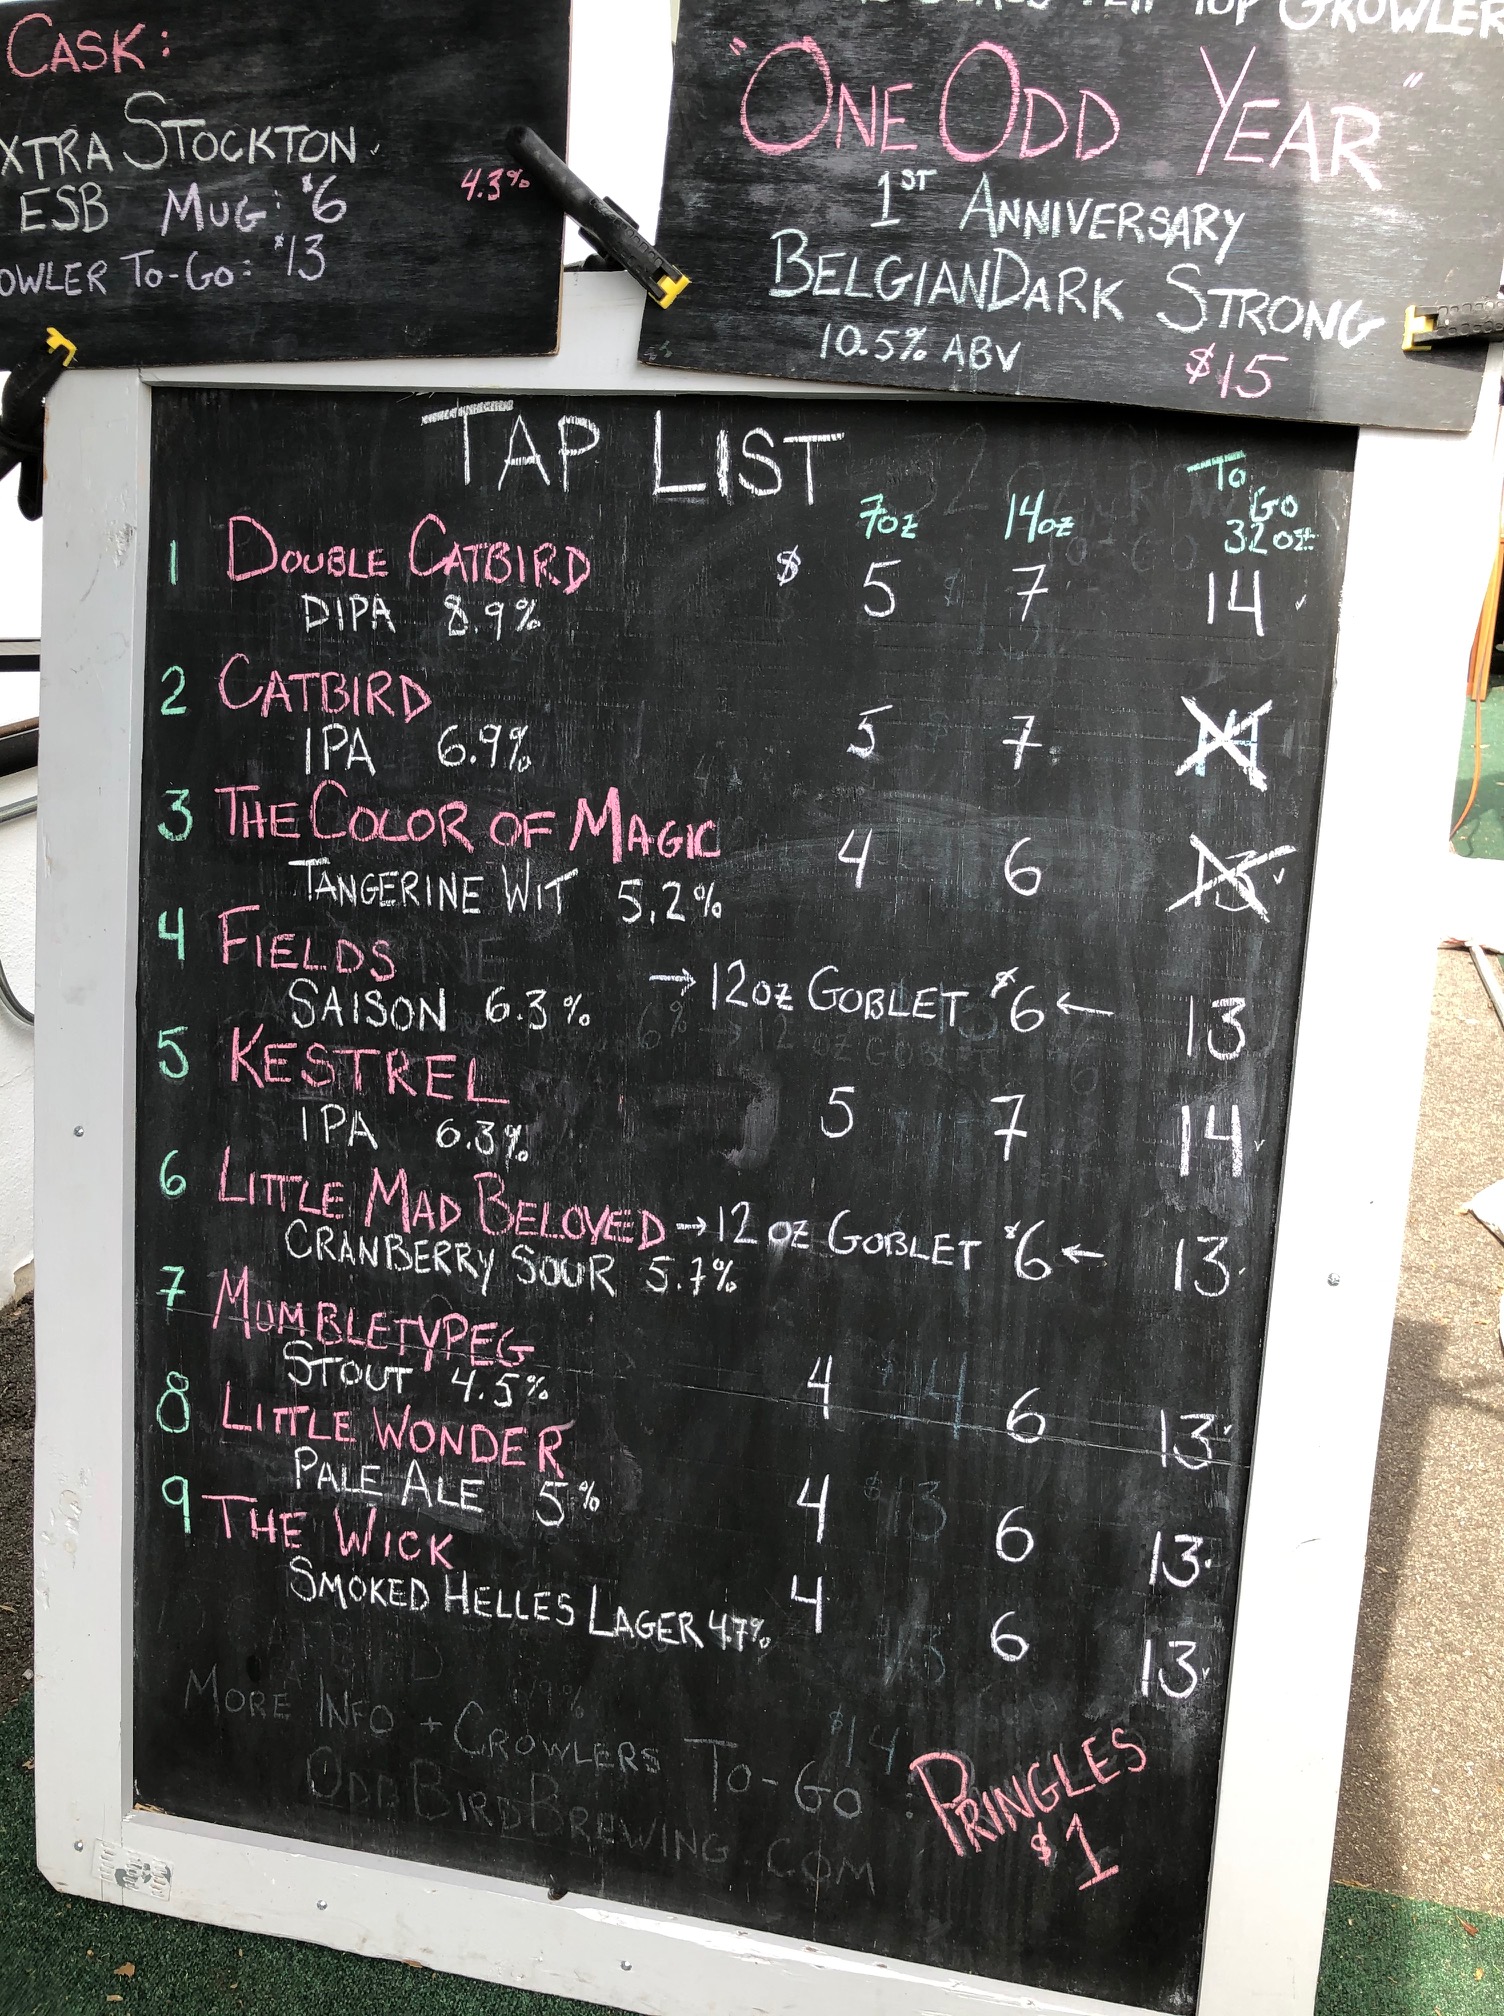 CASK:
XTRA STOCKTON
ESB MUG: $6 4.3%
OWLER TO-GO: $13
TOP GROWLER
"ONE ODD YEAR"
1ST ANNIVERSARY
BELGIAN DARK STRONG
10.5% ABV $15
TAP LIST
7oz 14oz TO GO 32oz
1 DOUBLE CATBIRD $ 5 7 14
DIPA 8.9%
2 CATBIRD 5 7 14
IPA 6.9%
3 THE COLOR OF MAGIC 4 6 13
TANGERINE WIT 5.2%
4 FIELDS → 12oz GOBLET $6 ← 13
SAISON 6.3%
5 KESTREL 5 7 14
IPA 6.3%
6 LITTLE MAD BELOVED → 12 oz GOBLET $6 ← 13
CRANBERRY SOUR 5.7%
7 MUMBLETYPEG 4 6 13
STOUT 4.5%
8 LITTLE WONDER 4 6 13
PALE ALE 5%
9 THE WICK 4 6 13
SMOKED HELLES LAGER 4.7%
MORE INFO + CROWLERS TO-GO :
ODDBIRDBREWING.COM
PRINGLES
$1